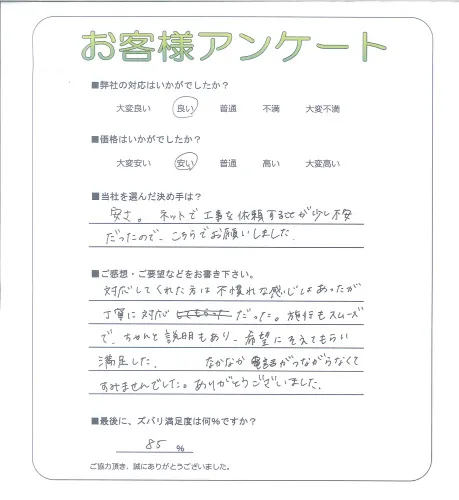 お客様アンケート
■弊社の対応はいかがでしたか?
大変良い 良い 普通 不満 大変不満
■価格はいかがでしたか?
大変安い 安い 普通 高い 大変高い
■当社を選んだ決め手は?
安さ。 ネットで工事を依頼することが少し不安
だったので、こちらでお願いしました
■ご感想・ご要望などをお書き下さい。
対応してくれた方は不慣れな感じはあったが
丁寧に対応 だった。施行もスムーズ
で、ちゃんと説明もあり、希望にそえてもらい
満足した。 なかなか電話がつながらなくて
すみませんでした。ありがとうございました。
■最後に、ズバリ満足度は何%ですか?
85 %
ご協力頂き、誠にありがとうございました。